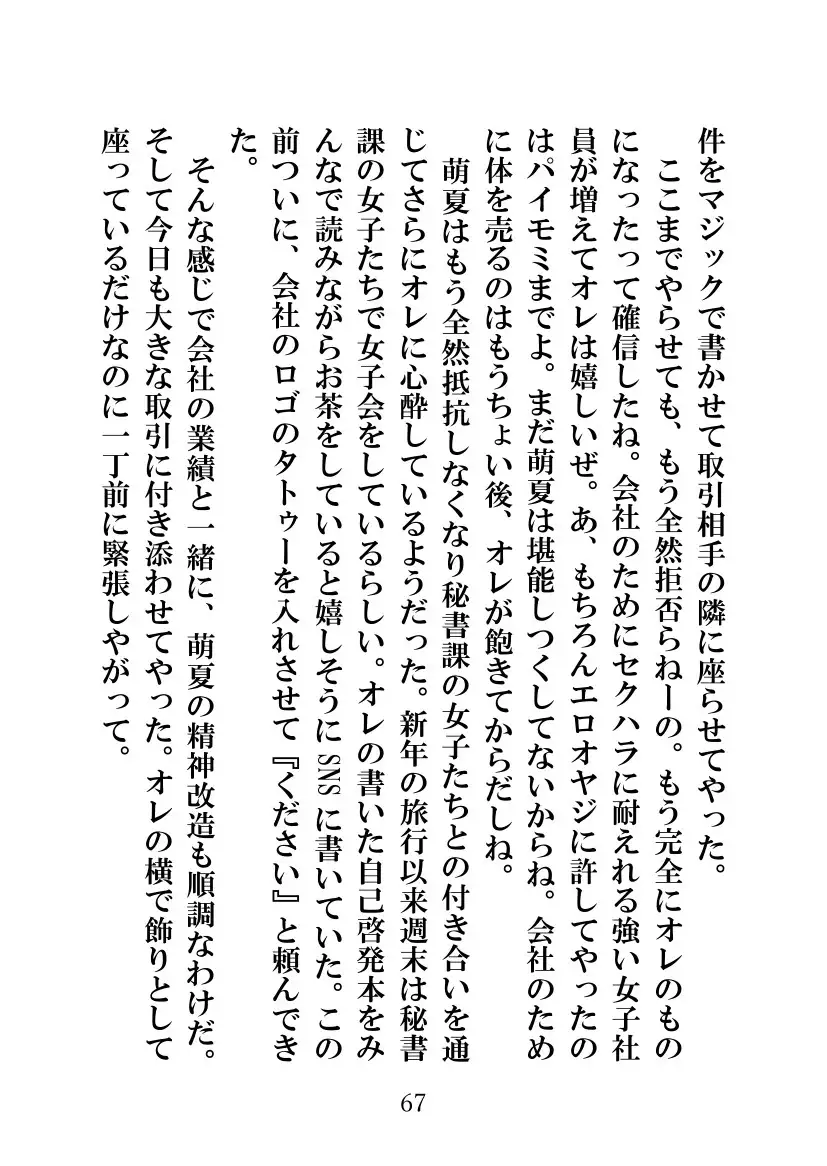 件をマジックで書かせて取引相手の隣に座らせてやった。
　ここまでやらせても、もう全然拒否らねーの。もう完全にオレのもの
になったって確信したね。会社のためにセクハラに耐えれる強い女子社
員が増えてオレは嬉しいぜ。あ、もちろんエロオヤジに許してやったの
はパイモミまでよ。まだ萌夏は堪能しつくしてないからね。会社のため
に体を売るのはもうちょい後、オレが飽きてからだしね。
　萌夏はもう全然抵抗しなくなり秘書課の女子たちとの付き合いを通
じてさらにオレに心酔しているようだった。新年の旅行以来週末は秘書
課の女子たちで女子会をしているらしい。オレの書いた自己啓発本をみ
んなで読みながらお茶をしていると嬉しそうに SNS に書いていた。この
前ついに、会社のロゴのタトゥーを入れさせて『ください』と頼んでき
た。
　そんな感じで会社の業績と一緒に、萌夏の精神改造も順調なわけだ。
そして今日も大きな取引に付き添わせてやった。オレの横で飾りとして
座っているだけなのに一丁前に緊張しやがって。
67